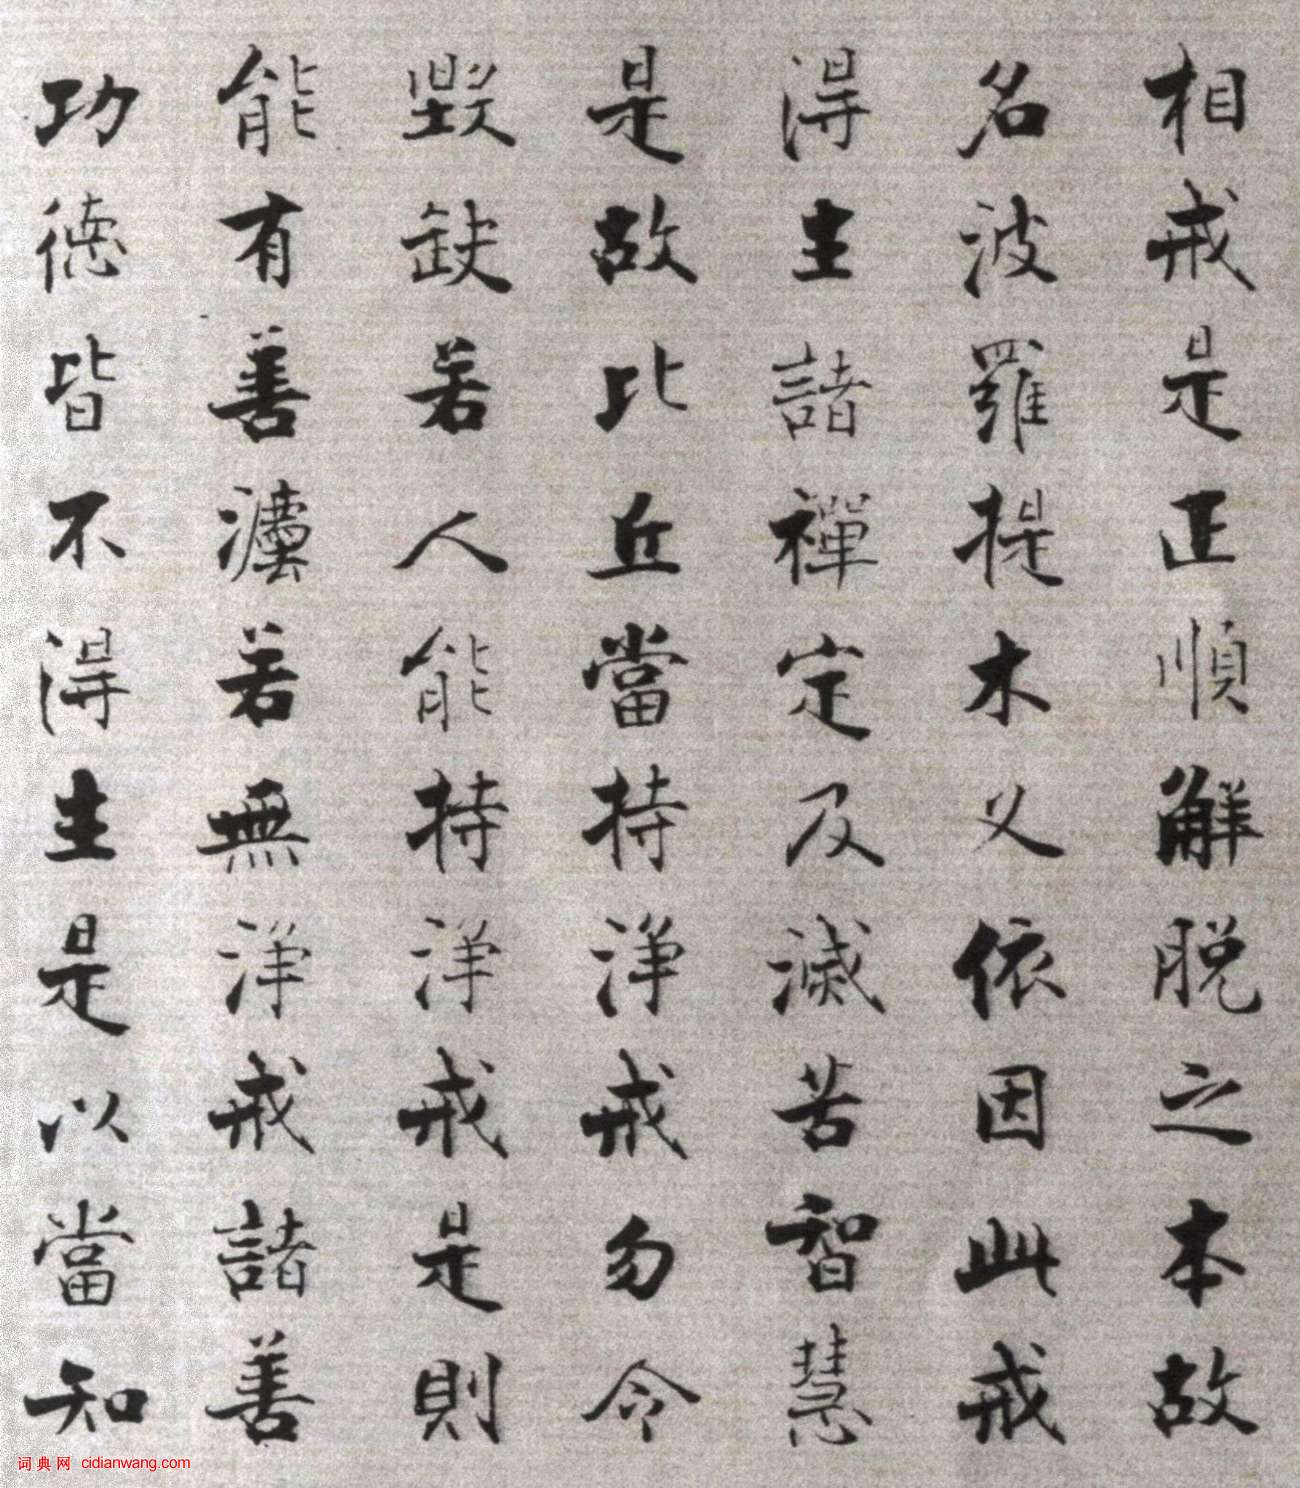 相戒是正順解脫之本故
名波羅提木乂依因此戒
淂主諸禪定及滅苦智慧
是故比丘當持淨戒勿令
毀缺若人能持淨戒是則
能有善灋若無淨戒諸善
功德皆不淂生是以當知
词典网 cidianwang.com